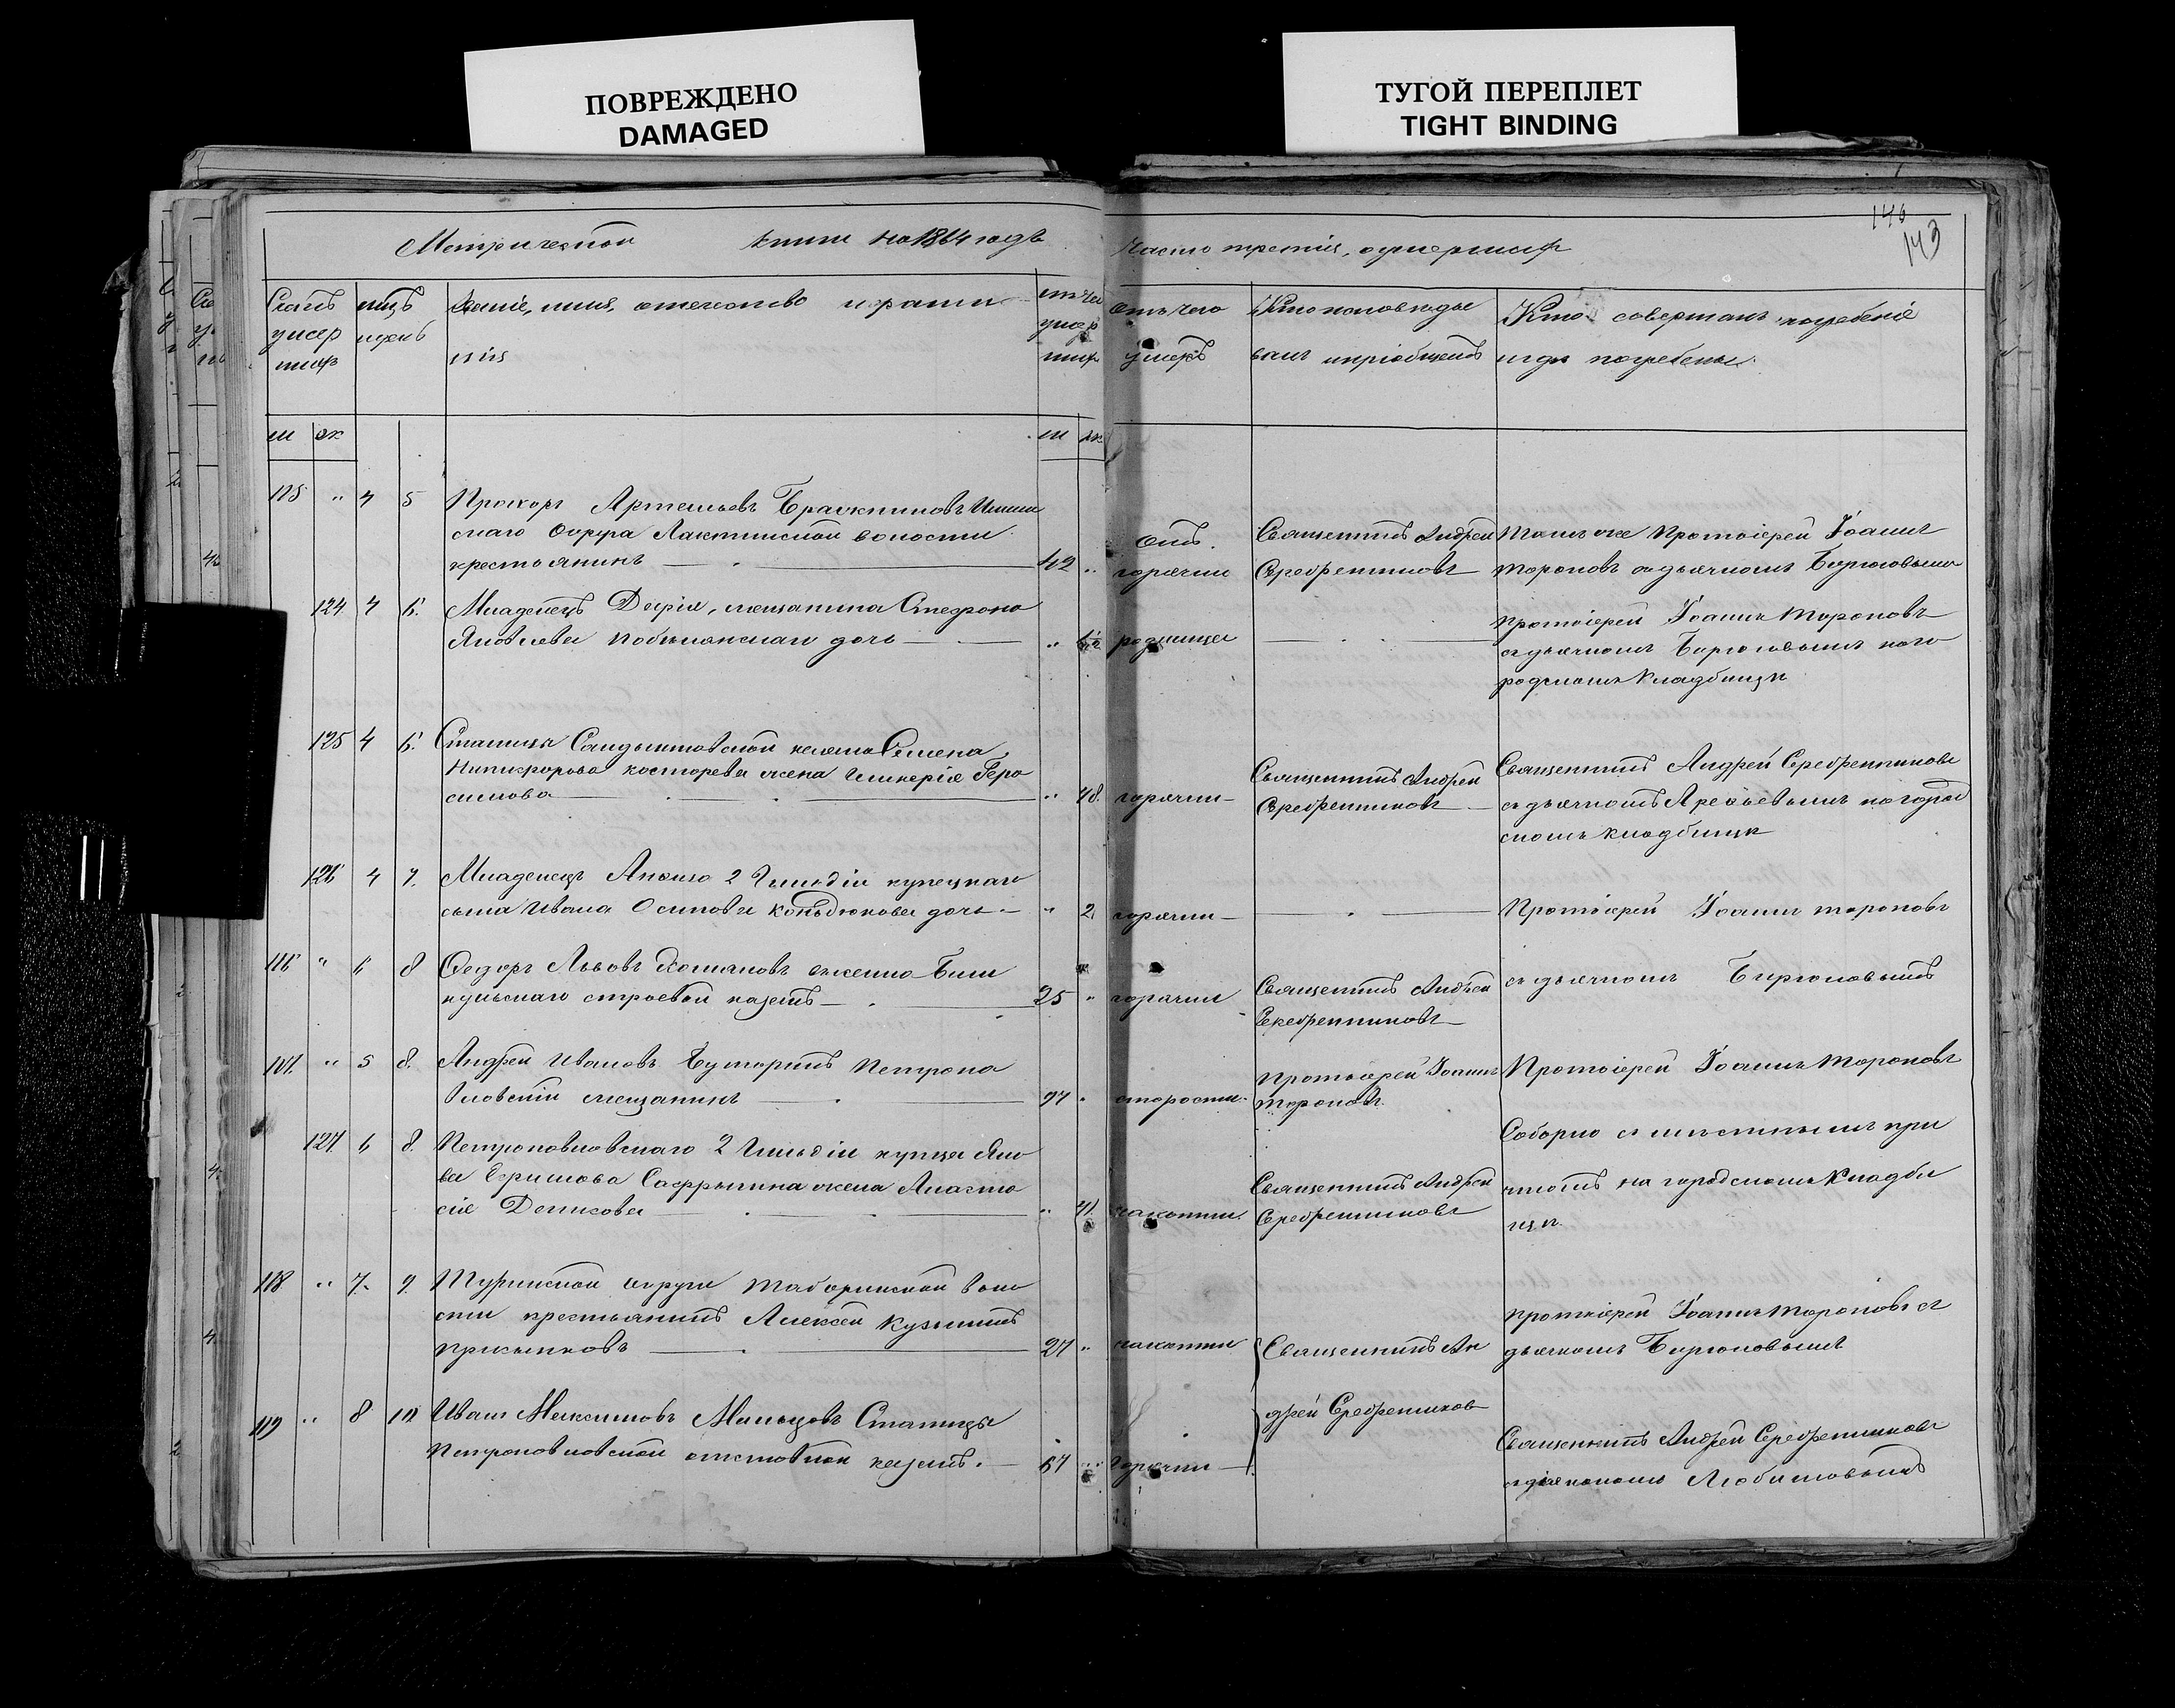 ПОВРЕЖДЕНО
DAMAGED
ТУГОЙ ПЕРЕПЛЕТ
TIGHT BINDING
146
143
Метрической книги на 1864 годъ
Часть третія, о умершихъ
Счетъ умер шихъ
мцъ и день
Званіе, имя, отечество и фами лія
лѣта умер шихъ
отъ чего умеръ
Кто исповѣды валъ и пріобщалъ
Кто совершалъ погребеніе и гдѣ погребены.
м ж м ж
115 " 4 5 Прохоръ Артемьевъ Ишим
скаго Округа Локтинской волости
крестьянинъ 42 " отъ горячки
Священникъ Андрей Серебренниковъ
Тотъ же Протоіерей Іоаннъ
Тороповъ съ дьячкомъ Бирюковымъ
124 4 6. Младенецъ мещанина
Яковлева дочь " родимца
Протоіерей Іоаннъ Тороповъ
съ дьячкомъ Бирюковымъ на го
родскомъ кладбищѣ
125 4 6. Станицы казака Семена
Никифорова Косторева жена Гликерія Гера
симова " 48. горячки
Священникъ Андрей
Серебренниковъ
Священникъ Андрей Серебренниковъ
съ дьячкомъ Арефьевымъ на город
скомъ кладбищѣ
126 4 7. Младенецъ Анна 2 Гильдіи купецкаго
сына Ивана Осипова дочь " 2. горячки
Протоіерей Іоаннъ Тороповъ
116 " 6 8 Федоръ Львовъ
строевой казакъ 25 " горячки
Священникъ Андрей
Серебренниковъ
съ дьячкомъ Бирюковымъ
117. " 5 8. Андрей Ивановъ Бутаринъ Петропа
вловскій мещанинъ 97 " старости
Протоіерей Іоаннъ
Тороповъ
Протоіерей Іоаннъ Тороповъ
127 6 8. Петропавловскаго 2 Гильдіи купца Яко
ва Ефимова жена Анаста
сія Денисова " 41. чахотки
Священникъ Андрей
Серебренниковъ
Соборно съ мѣстнымъ при
чтомъ на городскомъ кладби
щѣ.
118 " 7. 9. Туринской округи Таборинской воло
сти крестьянинъ Алексей Кузьминъ
27 " чахотки
Священникъ Ан
дрей Серебренников
Протоіерей Іоаннъ Тороповъ съ
дьячкомъ Бирюковымъ
119 " 8 10 Иванъ Максимовъ Мальцовъ Станицы
Петропавловской отставной казакъ. 67 " горячки
Священникъ Андрей Серебренниковъ
съ діякономъ Любимовымъ